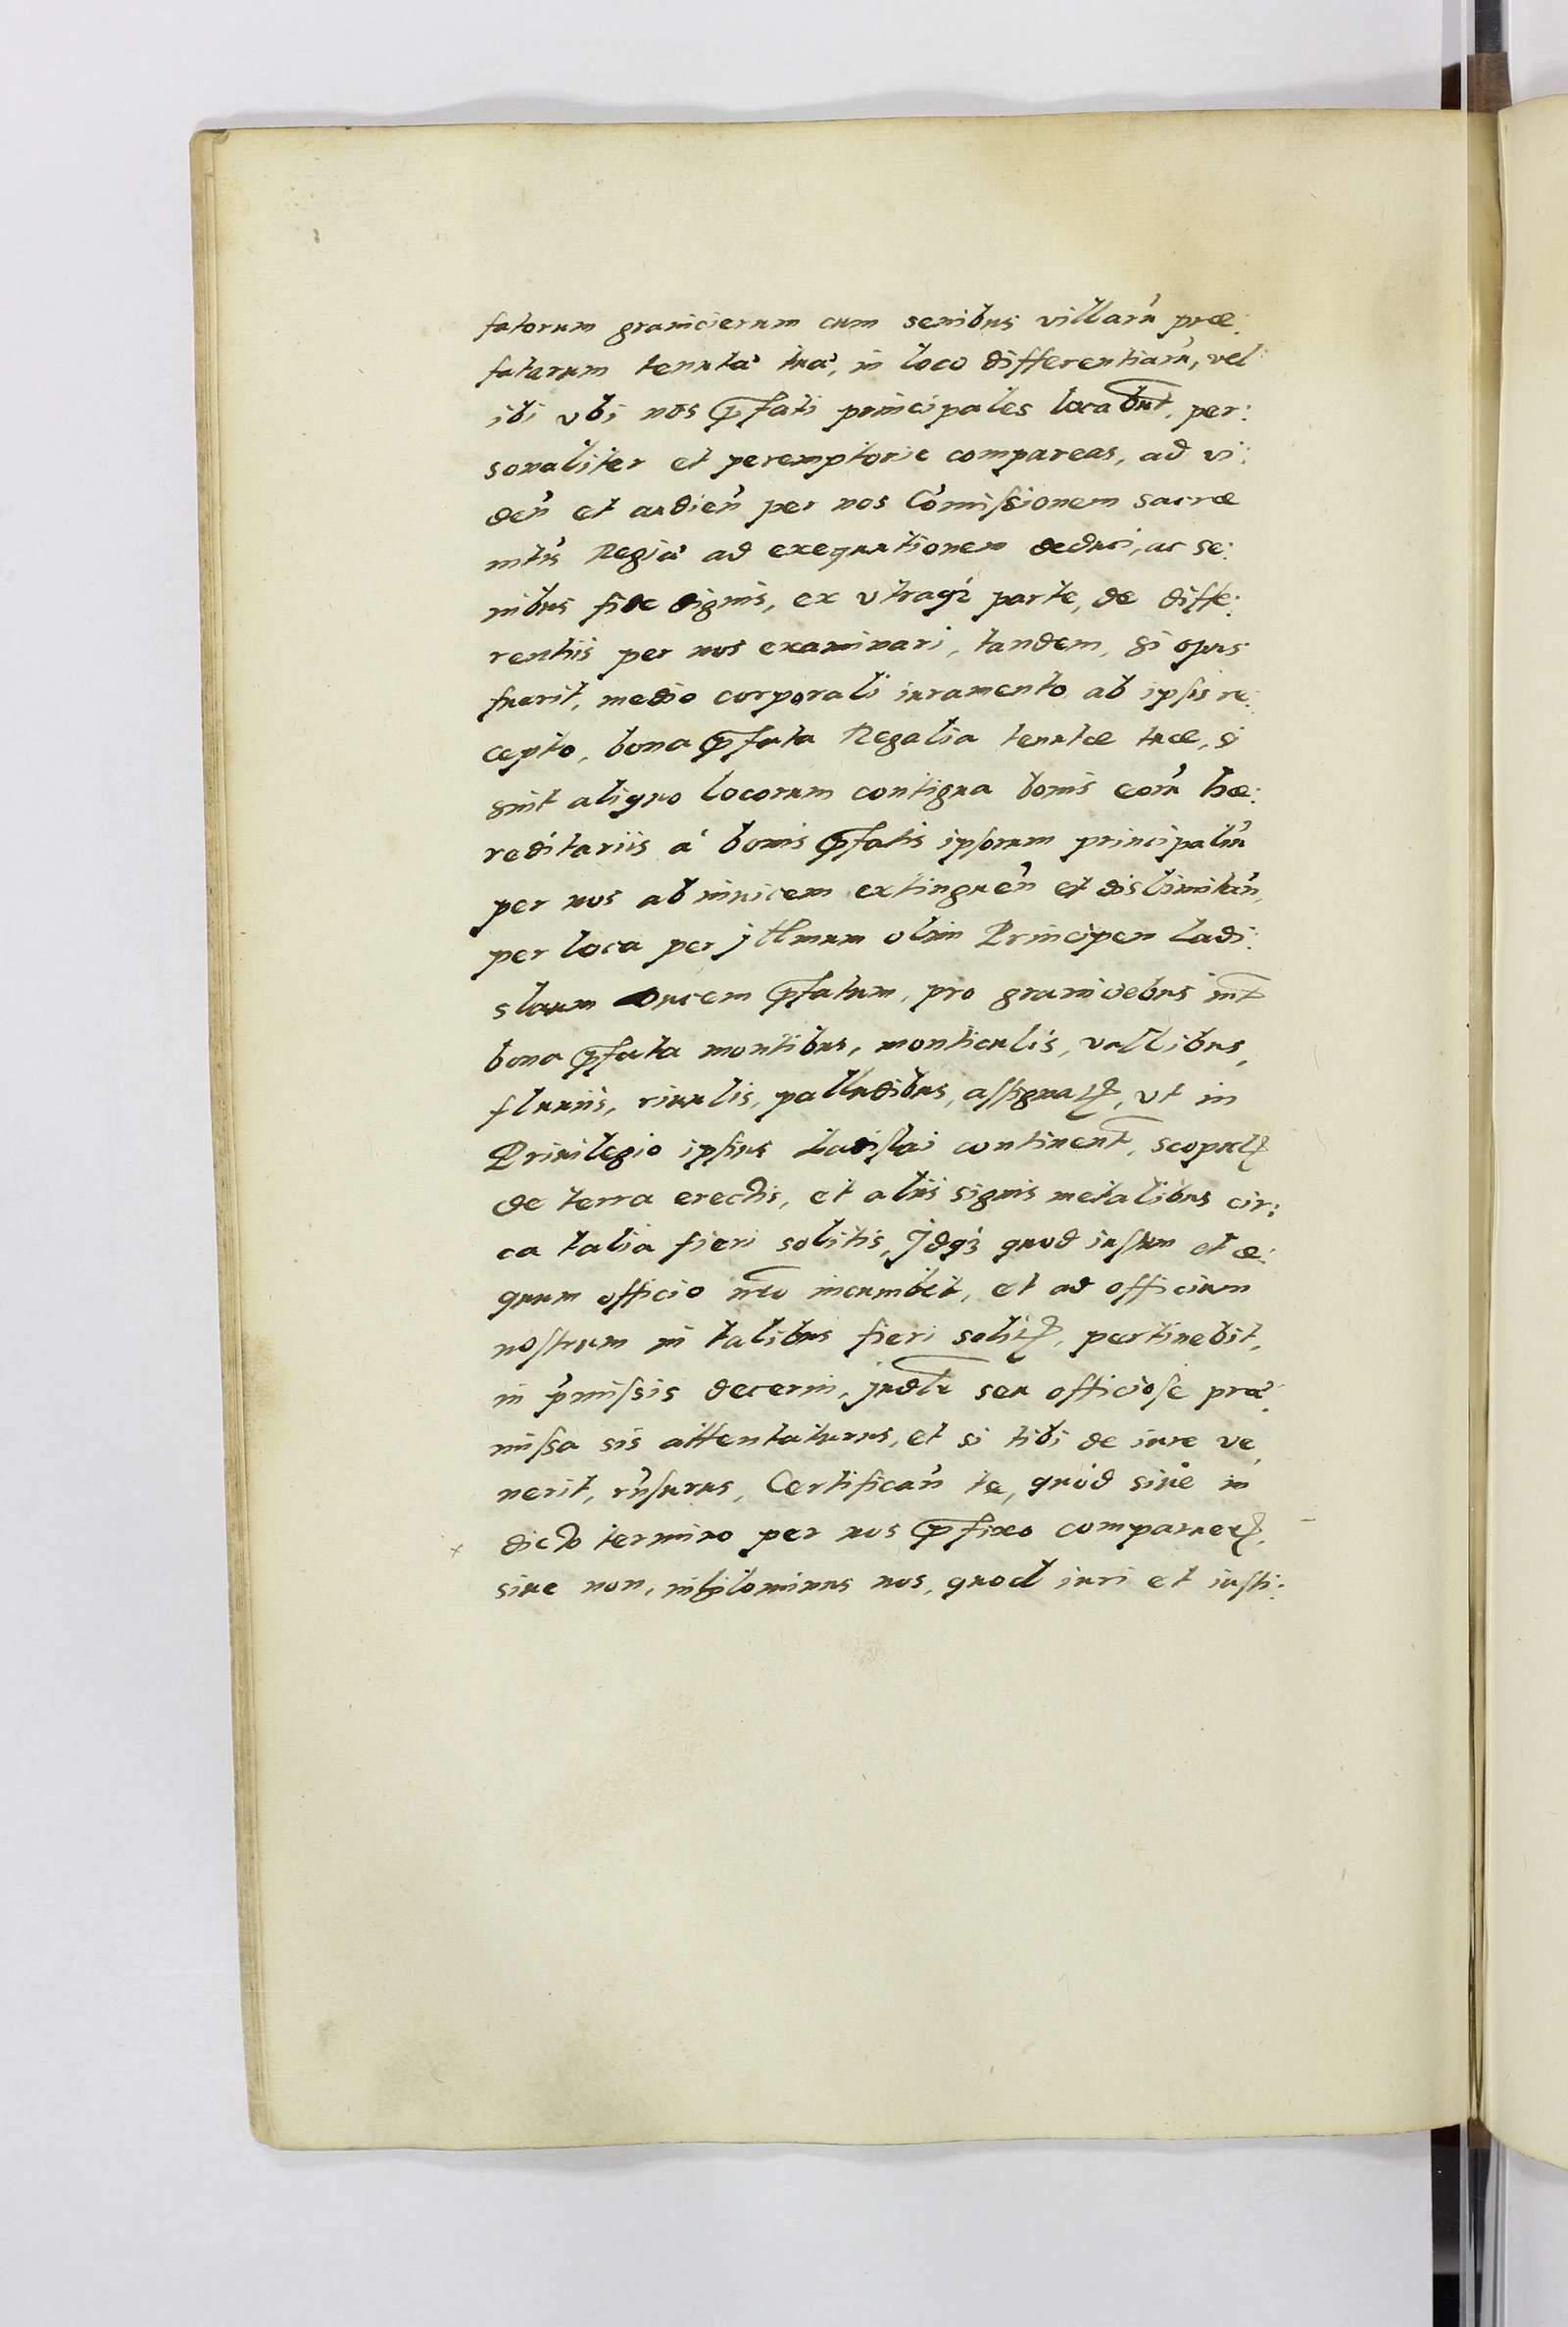 fatorum granicierum cum senibus villarũ præ:
fatarum tenutã tuã, in loco differentiarũ, vel
ibi vbi nos p̄fati principales locabũt, per:
sonaliter et peremptorie compareas, ad vi:
deñ et audieñ per nos Cõmissionem sacræ
mtis Regiã ad exequutionem deduci, ac se:
nibus fide dignis, ex vtraqȝ parte, de diffe:
rentiis per nos examinari, tandem, si opus
fuerit, medio corporali iuramento ab ipsis re:
cepto, bona p̄fata Regalia tenutæ tuæ, si
sint aliquo locorum contigua bonis eorũ hæ:
reditariis à bonis p̄fatis ipsorum principaliũ
per nos ab inuicem extingueñ et dislimitañ,
per loca per jllmum olim Principem Ladi:
slaum Ducem p̄fatum, pro graniciebus int̄
bona p̄fata montibus, monticulis, vallibus,
fluuiis, riuulis, palludibus, assignatꝭ, vt in
Priuilegio ipsius Ladislai continent̄, scopulꝭ
de terra erectis, et aliis signis metalibus cir:
ca talia fieri solitis, Jdqȝ quod iustum et æ:
quum officio nr̄o incumbet, et ad officium
nostrum in talibus fieri solitꝭ, pertinebit,
in p̃missis decerni, judlr̄ seu officiose præ:
missa sis attentaturus, et si tibi de iure ve
nerit, rñsurus, Certificañ te, quòd siue in
dicto termino per nos p̄fixo comparuerꝭ,
siue non, nihilominus nos, quod iuri et iusti: